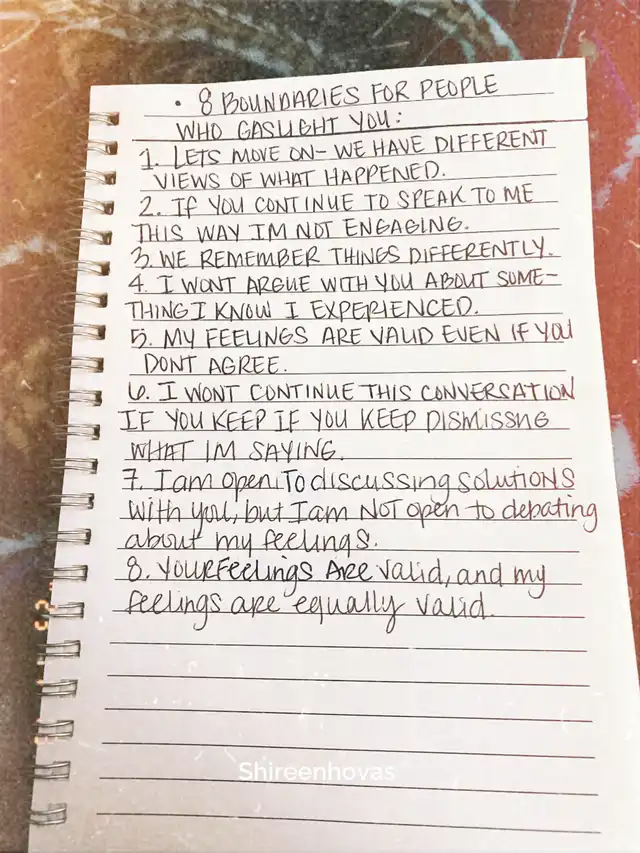 • 8 BOUNDARIES FOR PEOPLE
WHO GASLIGHT YOU:
1. LETS MOVE ON- WE HAVE DIFFERENT
VIEWS OF WHAT HAPPENED.
2. IF YOU CONTINUE TO SPEAK TO ME
THIS WAY IM NOT ENGAGING.
3. WE REMEMBER THINGS DIFFERENTLY.
4. I WONT ARGUE WITH YOU ABOUT SOME-
THING I KNOW I EXPERIENCED.
5. MY FEELINGS ARE VALID EVEN IF YOU
DONT AGREE.
6. I WONT CONTINUE THIS CONVERSATION
IF YOU KEEP IF YOU KEEP DISMISSNG
WHAT IM SAYING.
7. I am open To discussing solutIONS
with you, but I am NOT open to debating
about my feelings.
8. YOUR Feelings Are valid, and my
feelings are equally valid.
Shireenhovas